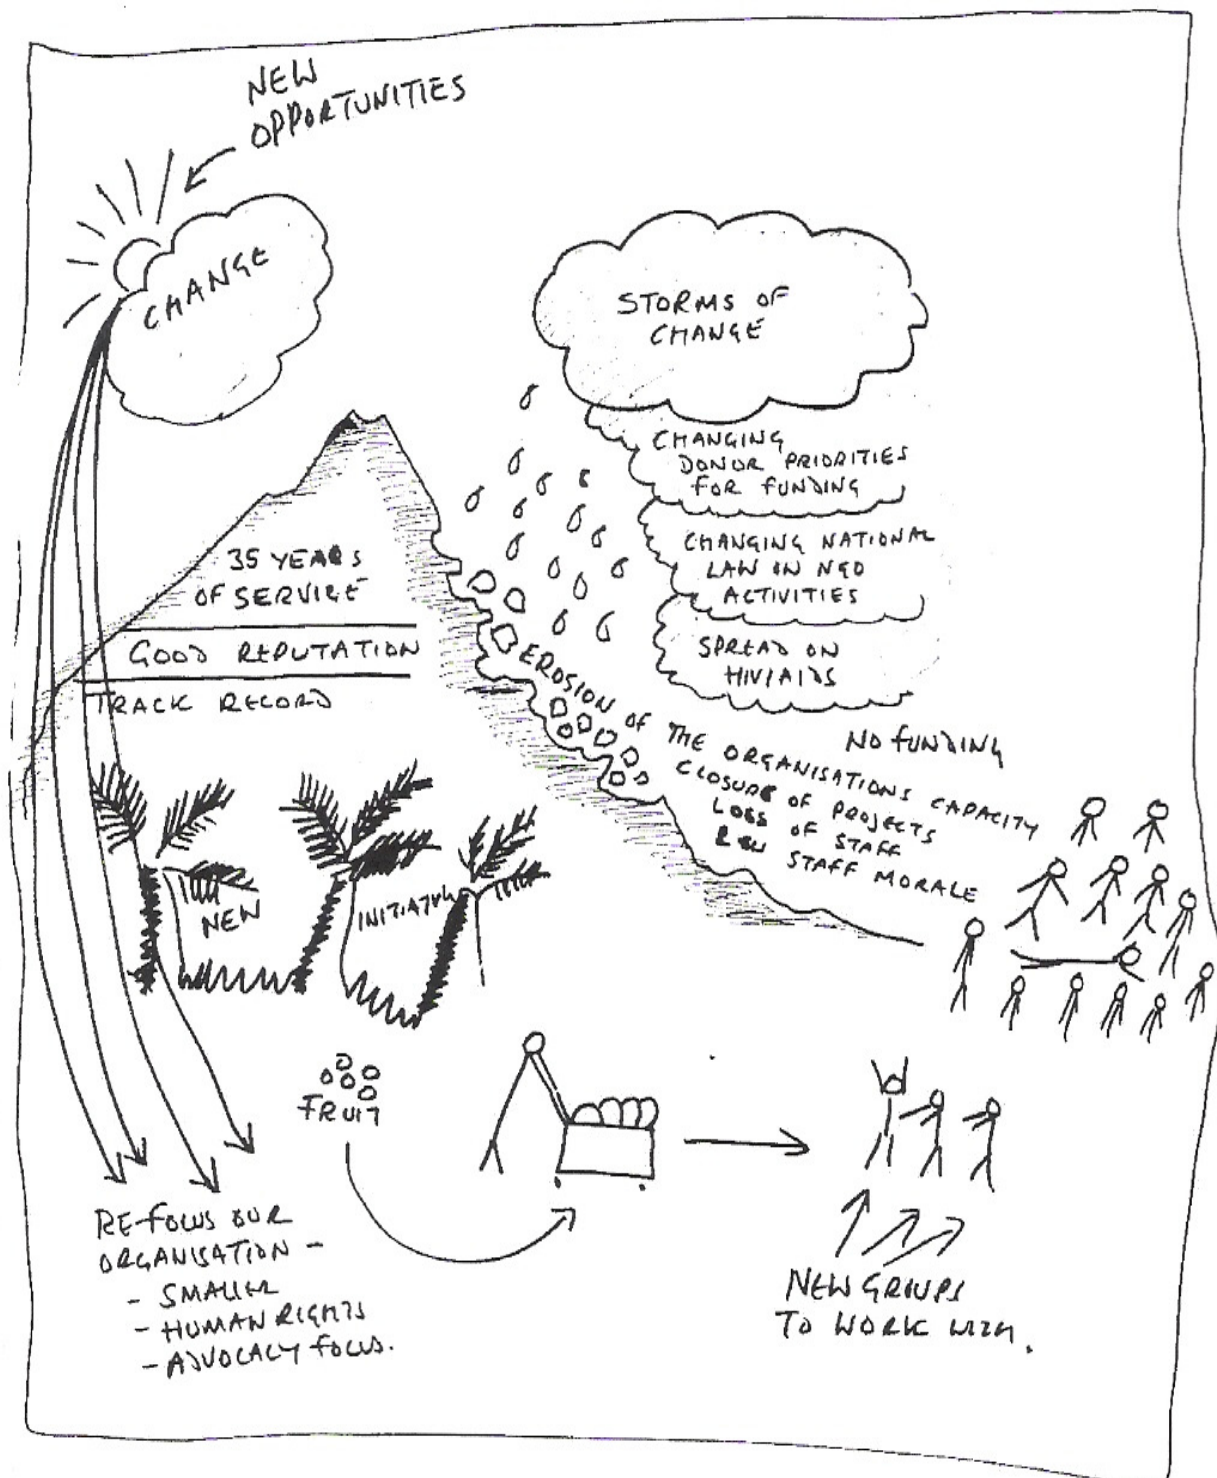 NEW
OPPORTUNITIES
CHANGE
STORMS OF
CHANGE
CHANGING
DONOR PRIORITIES
FOR FUNDING
CHANGING NATIONAL
LAW ON NGO
ACTIVITIES
SPREAD ON
HIV/AIDS
35 YEARS
OF SERVICE
GOOD REPUTATION
TRACK RECORD
EROSION OF THE ORGANISATIONS CAPACITY
NO FUNDING
CLOSURE OF PROJECTS
LOSS OF STAFF
LOW STAFF MORALE
NEW
INITIATIVE
FRUIT
RE-FOCUS OUR
ORGANISATION -
- SMALLER
- HUMAN RIGHTS
- ADVOCACY FOCUS.
NEW GROUPS
TO WORK WITH.